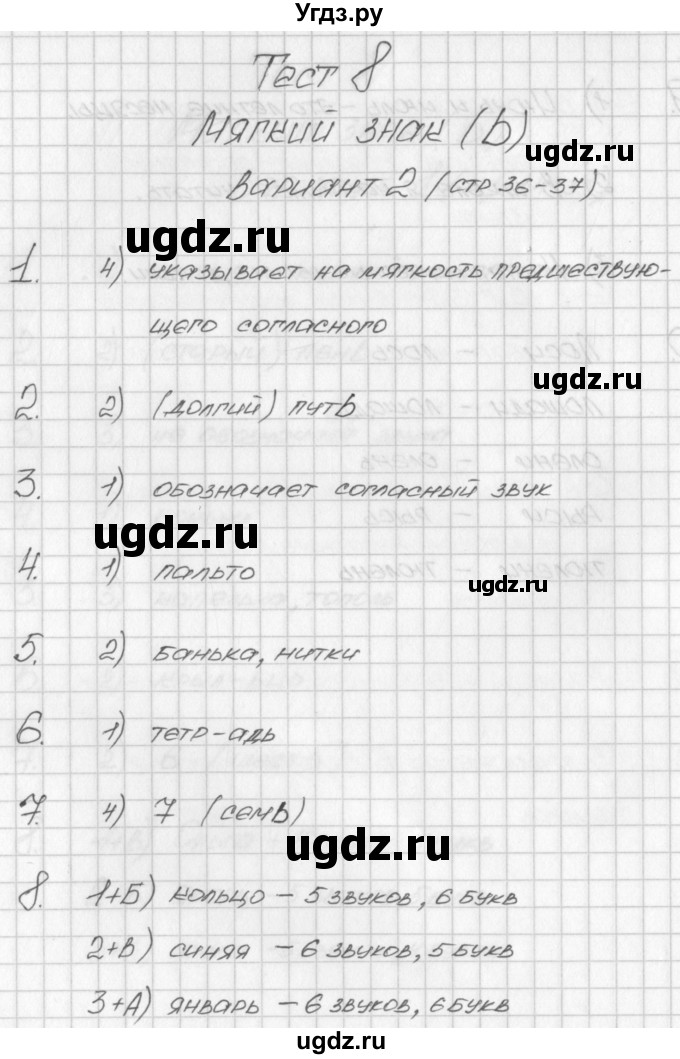 Угдз.ру
Тест 8
Мягкий знак (ь)
Вариант 2 (стр 36-37)
ugdz.ru
ugdz.ru
1. 4) указывает на мягкость предшествую-
щего согласного
ugdz.ru
2. 2) (долгий) путь
3. 1) обозначает согласный звук
ugdz.ru
4. 1) пальто
ugdz.ru
5. 2) банька, нитки
6. 1) тетр-адь
7. 4) 7 (семь)
ugdz.ru
8. 1+Б) кольцо - 5 звуков, 6 букв
2+В) синяя - 6 звуков, 5 букв
3+А) январь - 6 звуков, 6 букв
ugdz.ru